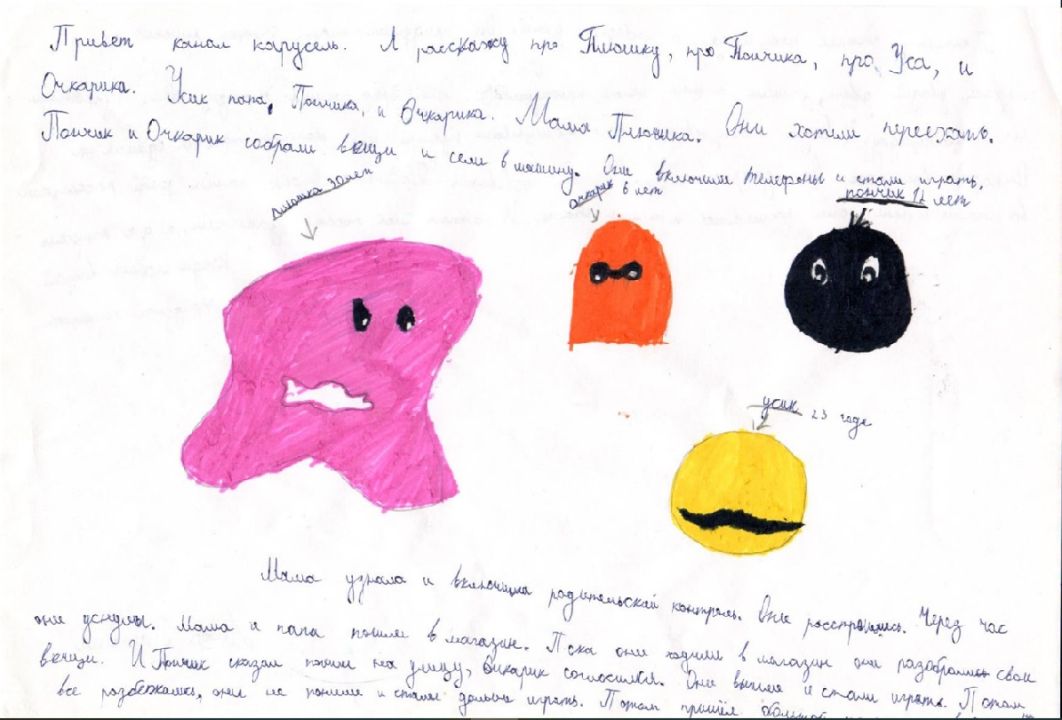 Привет канал карусель. Я расскажу про Плюшку, про Пончика, про Уса, и
Очкарика. Усик папа, Пончика, и Очкарика. Мама Плюшка. Они хотели переехать.
Пончик и Очкарик собрали вещи и сели в машину. Они включили телефоны и стали играть,
плюшка 30 лет
очкарик 6 лет
пончик 12 лет
усик 23 года
Мама узнала и включила родительский контроль. Они расстроились. Через час
они уснули. Мама и папа пошли в магазин. Пока они ходили в магазин они разобрали свои
вещи. И Пончик сказал пошли на улицу, Очкарик согласился. Они вышли и стали играть. Потом
все разбежались, они не поняли и стали дальше играть. Потом пришёл